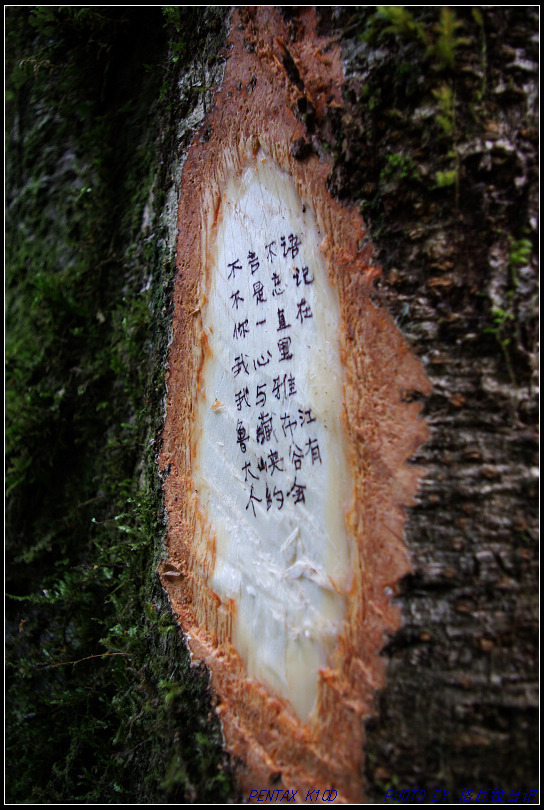 不言不语
不是忘记
你一直在
我心里
我与雅
鲁藏布江
大峡谷有
个约会
PENTAX K10D PHOTO BY